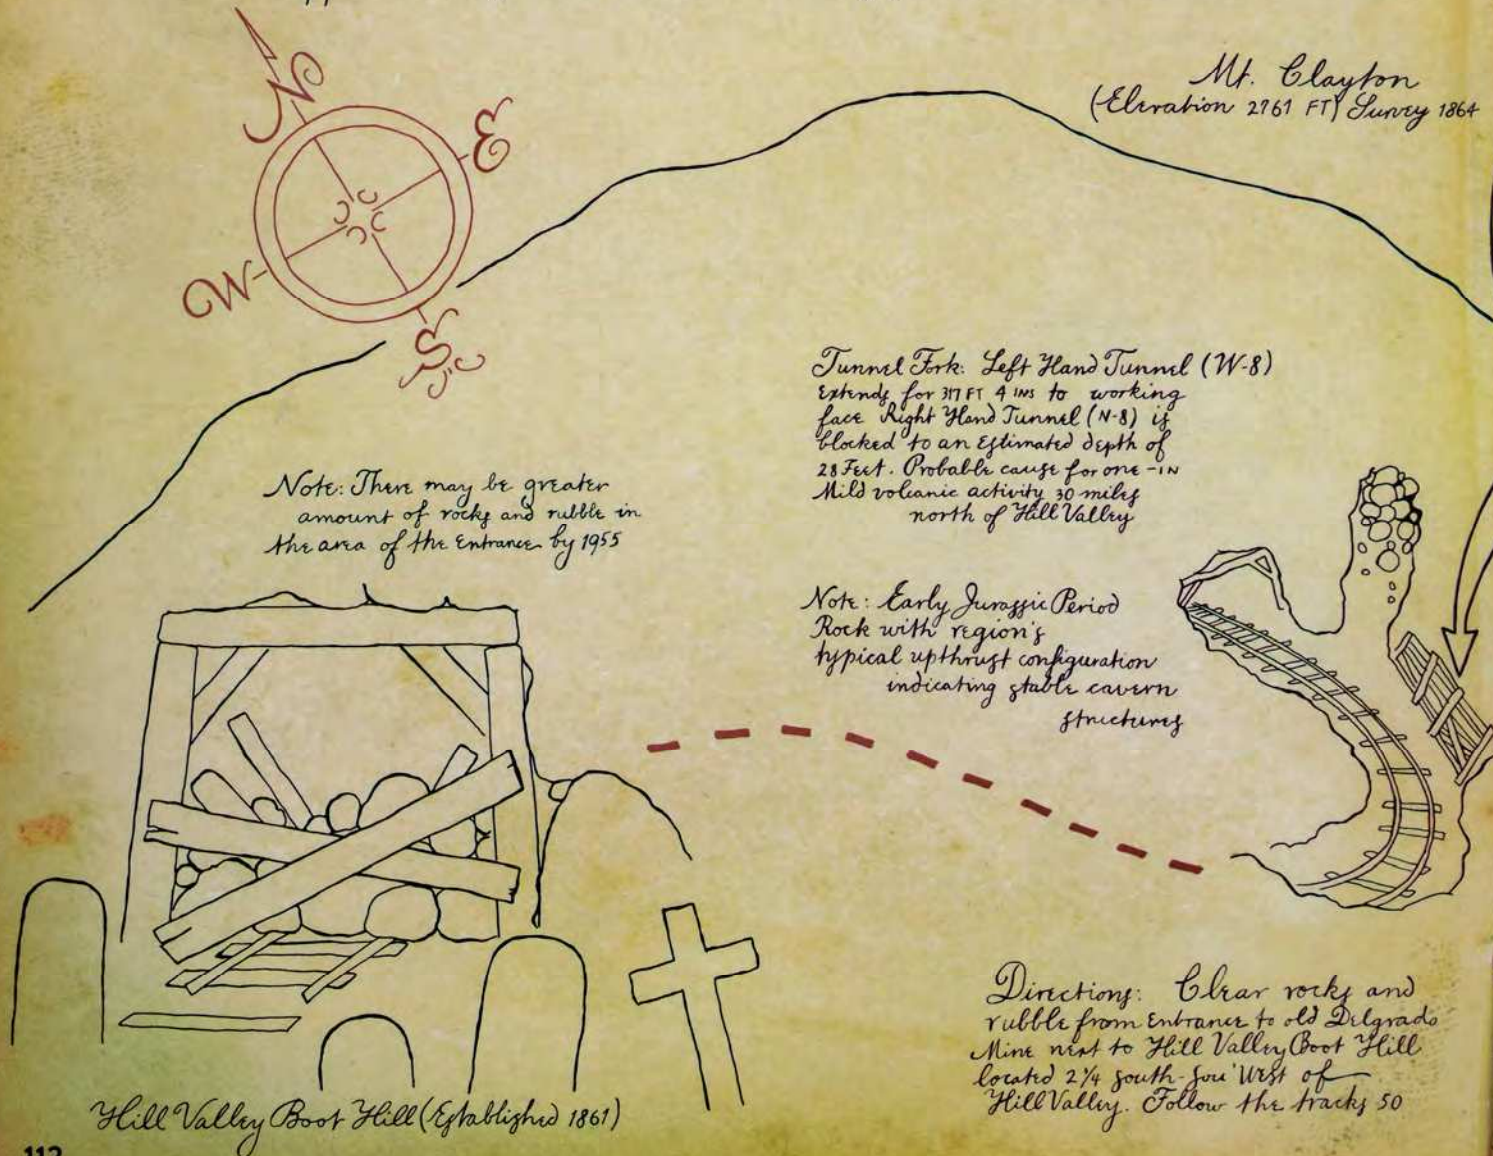 N
E
W
S
Mt. Clayton
(Elevation 2761 FT) Survey 1864
Tunnel Fork: Left Hand Tunnel (W-8)
Extends for 317 FT 4 INS to working
face Right Hand Tunnel (N-8) is
blocked to an Estimated depth of
28 Feet. Probable cause for one-IN
Mild volcanic activity 30 miles
north of Hill Valley
Note: There may be greater
amount of rocks and rubble in
the area of the Entrance by 1955
Note: Early Jurassic Period
Rock with region's
typical upthrust configuration
indicating stable cavern
structures
Directions: Clear rocks and
rubble from Entrance to old Delgrado
Mine next to Hill Valley Boot Hill
located 2 1/4 south-sou'West of
Hill Valley. Follow the tracks 50
Hill Valley Boot Hill (Established 1861)
112